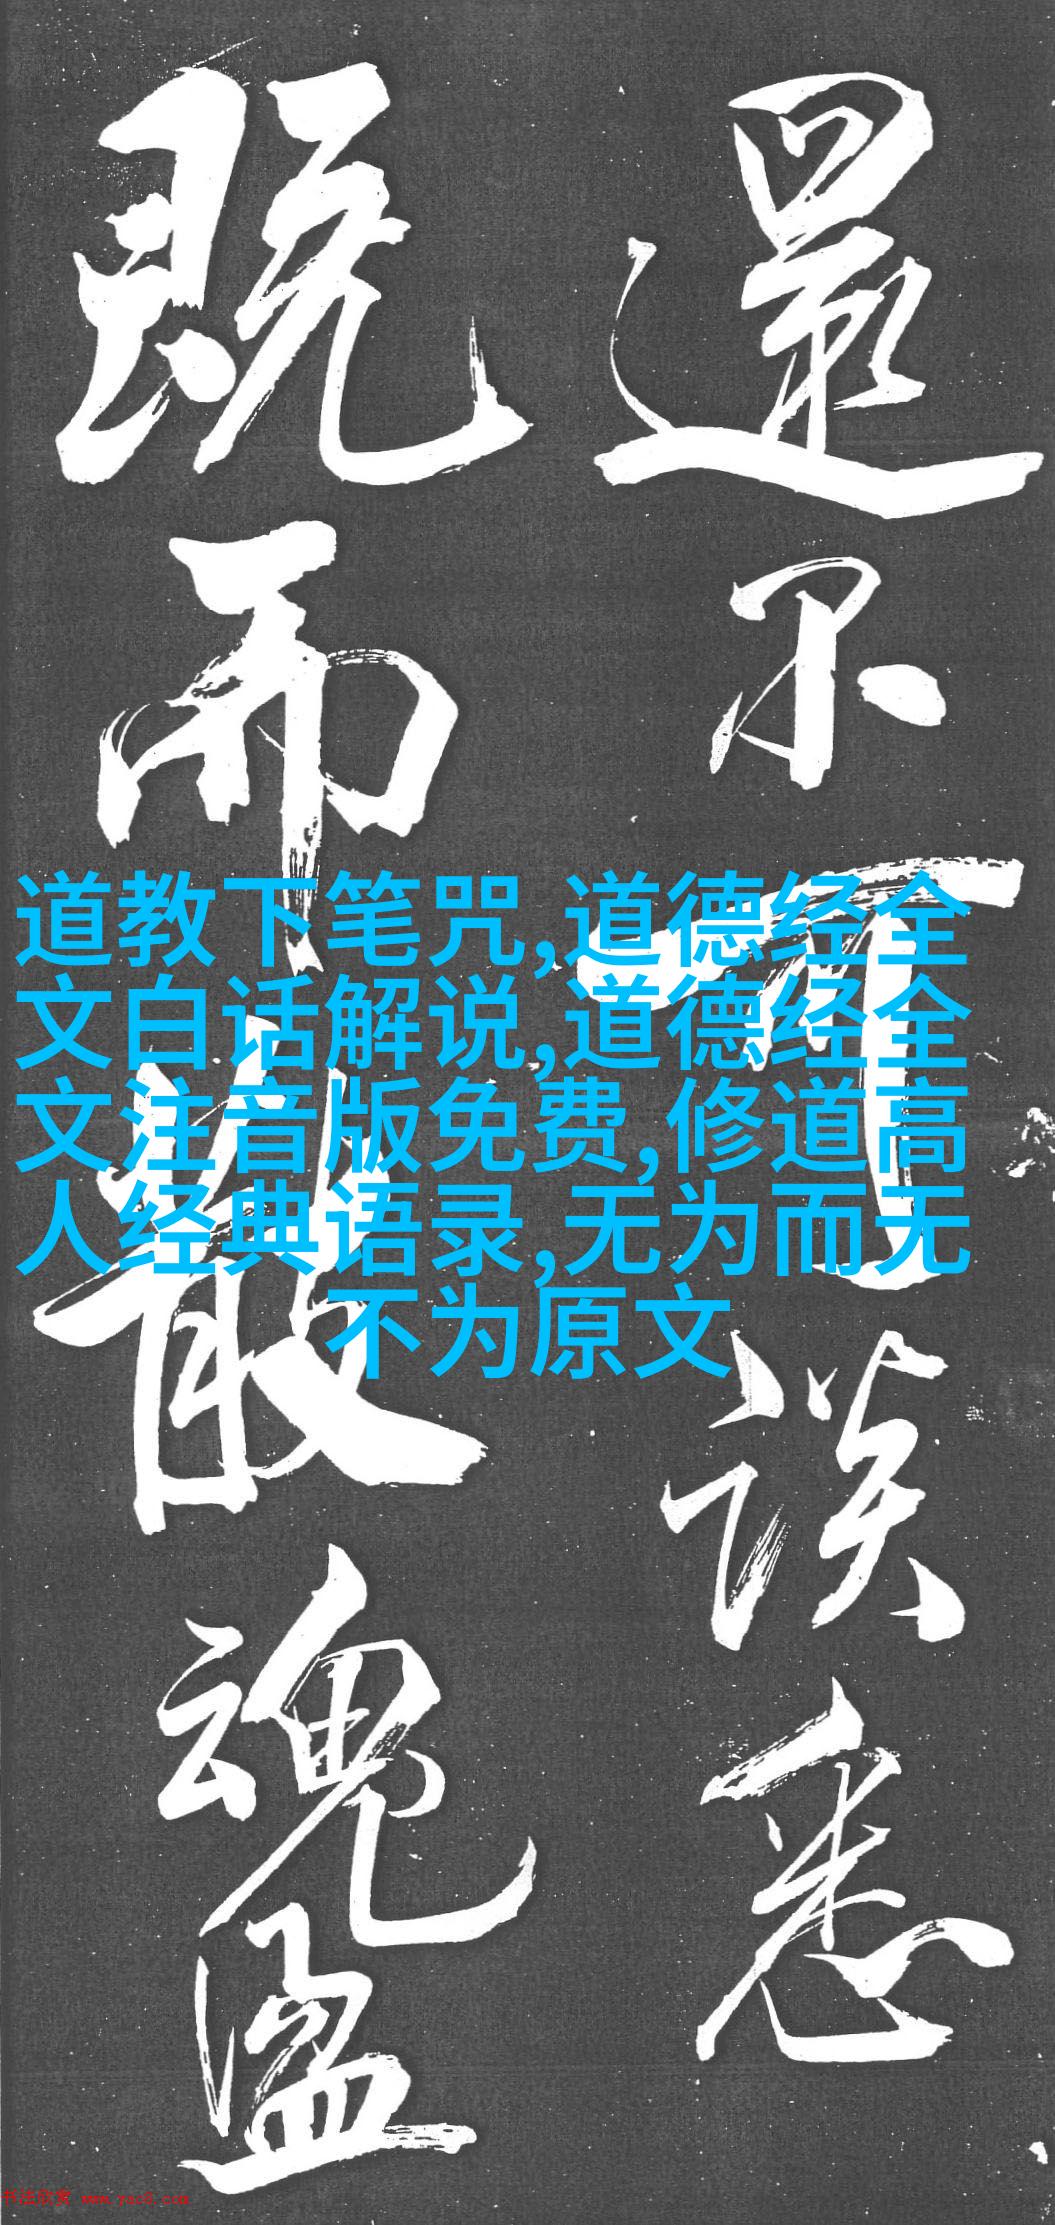 還不可談悉
既而以散魂盪
道教下笔咒,道德经全
文白话解说,道德经全
文注音版免费,修道高
人经典语录,无为而无
不为原文
书法欣赏 www.yac8.com